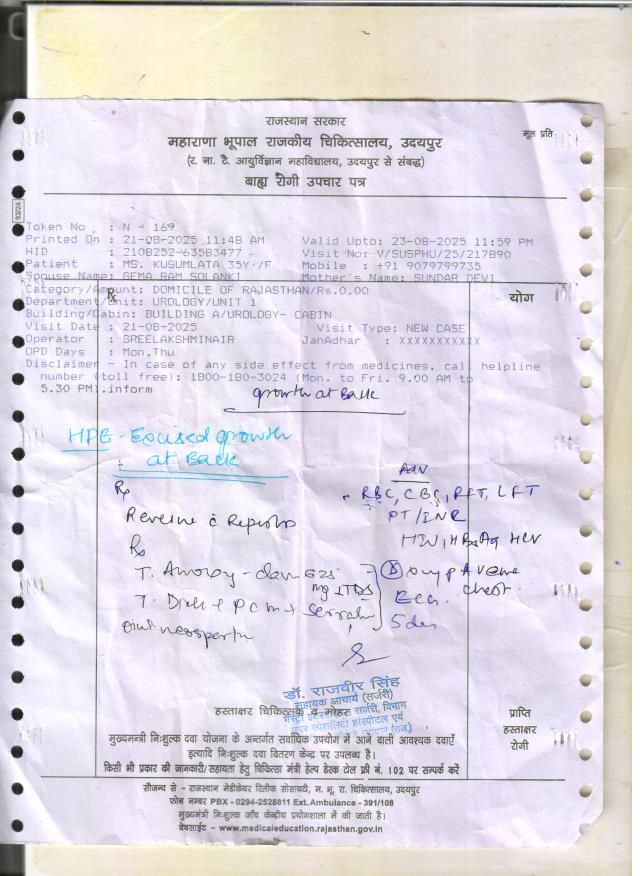 राजस्थान सरकार
महाराणा भूपाल राजकीय चिकित्सालय, उदयपुर
मूल प्रति
(र. ना. टै. आयुर्विज्ञान महाविद्यालय, उदयपुर से संबद्ध)
बाह्य रोगी उपचार पत्र
93/24
Token No : N - 169
Printed On : 21-08-2025 11:48 AM Valid Upto: 23-08-2025 11:59 PM
HID : 2108252-63583477 Visit No: V/SUSPHU/25/217890
Patient : MS. KUSUMLATA 35Y /F Mobile : +91 9079799735
Spouse Name: GEMA RAM SOLANKI Mother's Name: SUNDAR DEVI
Category/Amount: DOMICILE OF RAJASTHAN/Rs.0.00
योग
Department/Unit: UROLOGY/UNIT 1
Building/Cabin: BUILDING A/UROLOGY- CABIN
Visit Date : 21-08-2025 Visit Type: NEW CASE
Operator : SREELAKSHMINAIR JanAdhar : XXXXXXXXXXX
OPD Days : Mon,Thu
Disclaimer - In case of any side effect from medicines, call helpline
number (toll free): 1800-180-3024 (Mon. to Fri. 9.00 AM to
5.30 PM).inform
growth at Back
HPE - Excised growth
at Back
Adv
RBC, CBC, RFT, LFT
PT/INR
HIV, HBsAg HCV
Review c Reports
chest
5
डॉ. राजवीर सिंह
सहायक आचार्य (सर्जरी)
हस्ताक्षर चिकित्सक व मोहर
प्राप्ति
हस्ताक्षर
रोगी
मुख्यमन्त्री निःशुल्क दवा योजना के अन्तर्गत सर्वाधिक उपयोग में आने वाली आवश्यक दवाएँ
इत्यादि निःशुल्क दवा वितरण केन्द्र पर उपलब्ध है।
किसी भी प्रकार की जानकारी/सहायता हेतु चिकित्सा मंत्री हेल्प डेस्क टोल फ्री नं. 102 पर सम्पर्क करें
सौजन्य से - राजस्थान मेडीकेयर रिलीफ सोसायटी, म. भू. रा. चिकित्सालय, उदयपुर
फोन नम्बर PBX - 0294-2528811 Ext. Ambulance - 391/108
मुख्यमन्त्री निःशुल्क जाँच केन्द्रीय प्रयोगशाला में की जाती है।
वेबसाईट - www.medicaleducation.rajasthan.gov.in